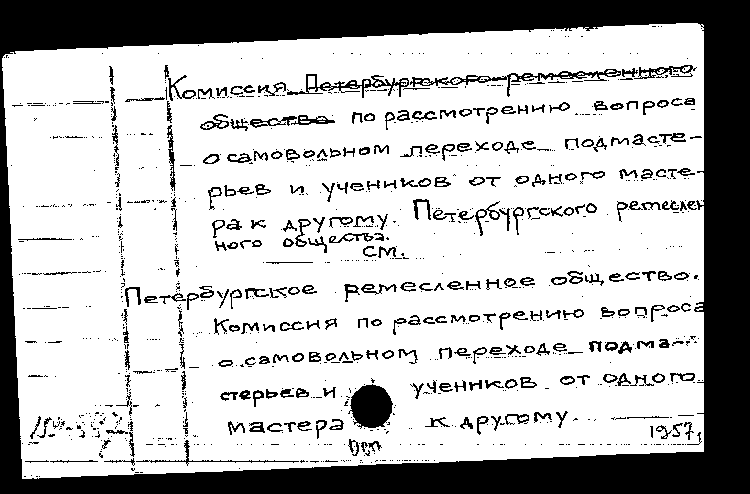 Комиссия Петербургского ремесленного
общества по рассмотрению вопроса
о самовольном переходе подмасте-
рьев и учеников от одного масте-
ра к другому. Петербургского ремеслен
ного общества.
см.
Петербургское ремесленное общество.
Комиссия по рассмотрению вопроса
о самовольном переходе подма-
стерьев и учеников от одного
мастера к другому.
1957,